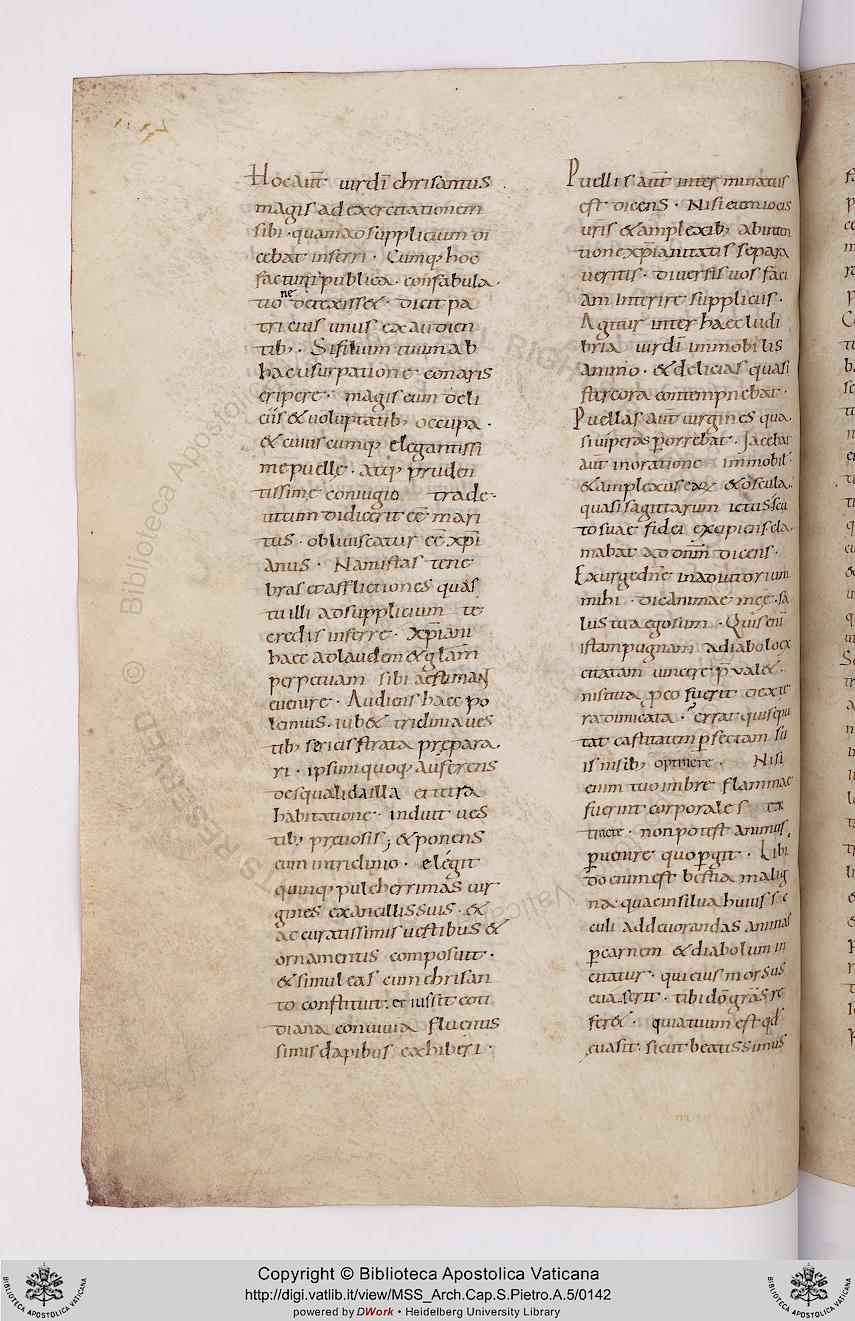 Hoc aut̄ uir dī chrisantus
magis ad exercitationem
sibi · quam ad supplicium di
cebat inferri · Cumq; hoc
facturū publica · confabula
tione detexisset · dicit pa
tri eius unus ex audien
tib; · Si filium tuum ab
hac usurpatione conaris
eripere · magis eum deli
ciis & uoluptatib; occupa ·
& cuiuscumq; elegantissi
me puelle · atq; pruden
tissime coniugio trade ·
ut cum didicerit eē mari
tus · obliuiscatur eē xp̄i
anus · Nam istas tene
bras et afflictiones quas
tu illi ad supplicium te
credis inferre · xp̄iani
haec ad laudem & glām
perpetuam sibi aestimant
euenire · Audiens haec po
lemius · iub& triclinia ues
tib; sericis strata prępara
ri · ipsum quoq; auferens
de squalida illa et tetra
habitatione · induit ues
tib; pretiosis; & ponens
eum in triclinio · elegit
quinq; pulcherrimas uir
gines ex ancillis suis · &
accuratissimis uestibus &
ornamentis composuit ·
& simul eas cum chrisan
to constituit · et iussit coti
diana conuiuia fluentis
simis dapibus exhiberi ·
Puellis aut̄ inter minatus
est dicens · Nisi eum iocis
uris & amplexib; ab inten
tione xp̄ianitatis separa
ueritis · diuersis uos faci
am interire suppliciis ·
Agitur inter haec ludi
bria uir dī immobilis
animo · & delicias quasi
stercora contempnebat ·
Puellas aut̄ uirgines qua
si uiperas p̱orrebat · Jacebat
aut̄ in oratione immobil ·
& amplexus eaꝝ & oscula
quasi sagittarum ictus · scu
to suae fidei excipiens · cla
mabat ad dnm̄ dicens ·
Exurge dn̄e in adiutorium
mihi · dic animae meę · sa
lus tua ego sum · Quis enī
istam pugnam a diabolo ex
citatam uincere p̄ualet ·
nisi tua p̱ eo fuerit dexte
ra dimicata · errat quisq; pu
tat castitatem p̱fectam su
is uisib; optinere · Nisi
enim tuo imbre flammae
fuerint corporales ex
tincte · non potest animus
p̱uenire quo p̱git · Libi
do enim est bestia malig
na quae in silua huius sę
culi ad deuorandas animas
p̱ carnem & diabolum in
citatur · qui eius morsus
euaserit · tibi dō gr̄as re
fer& · quia tuum est qd
euasit · sicut beatissimus
Copyright © Biblioteca Apostolica Vaticana
http://digi.vatlib.it/view/MSS_Arch.Cap.S.Pietro.A.5/0142
powered by DWork • Heidelberg University Library